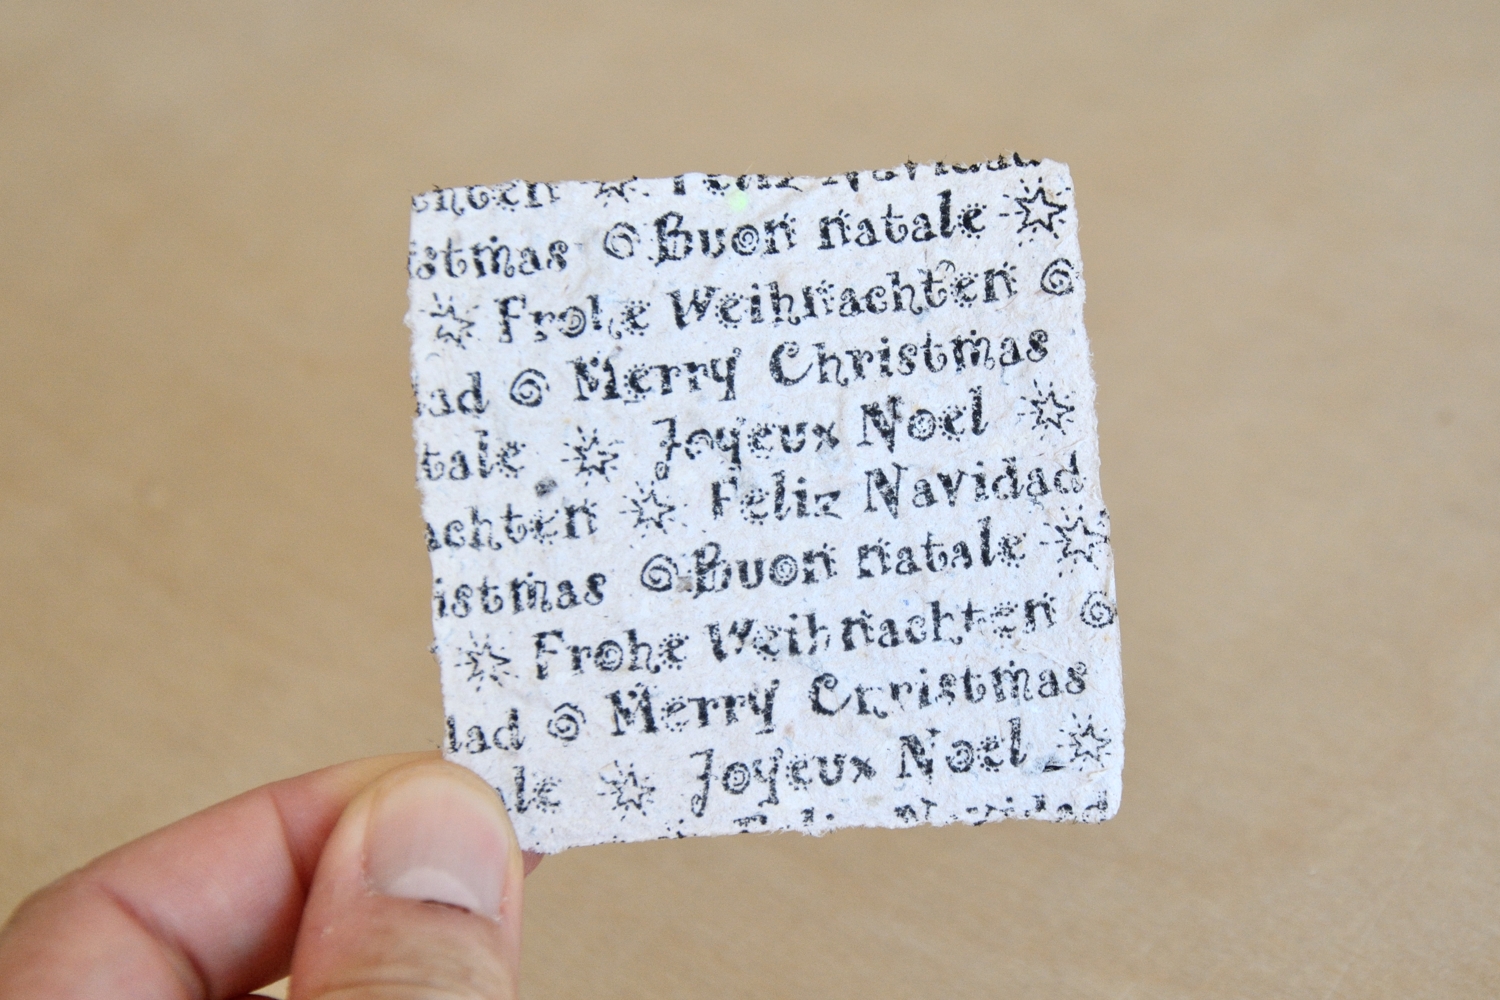 chten Feliz Navidad
istmas Buon natale
Frohe Weihnachten
dad Merry Christmas
tale Joyeux Noel
achten Feliz Navidad
istmas Buon natale
Frohe Weihnachten
dad Merry Christmas
ale Joyeux Noel
Feliz Navidad